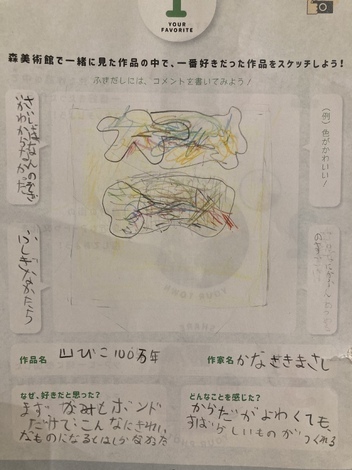 1
YOUR
FAVORITE
森美術館で一緒に見た作品の中で、一番好きだった作品をスケッチしよう!
ふきだしには、コメントを書いてみよう!
(例)色がかわいい!
さいしょはなんのえか
わからなかった
ふしぎなかたち
作品名 山びこ100万年
作家名 かなざきまさし
なぜ、好きだと思った?
まず、かみとボンド
だけで、こんなにきれい
なものになるとは
どんなことを感じた?
からだがよわくても、
すばらしいものがつくれる